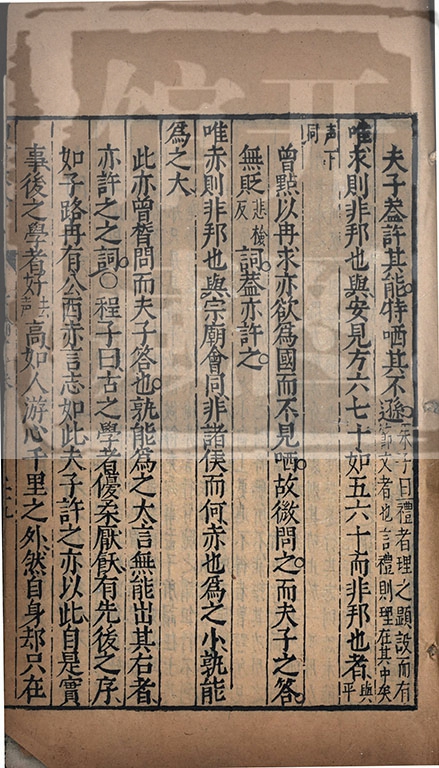 夫子蓋許其能。特哂其不遜。朱子曰禮者理之顯設而有節文者也言禮則理在其中矣
唯求則非邦也與安見方六七十如五六十而非邦也者與平
声下同
曾點以冉求亦欲為國而不見哂。故微問之。而夫子之答。
無貶悲檢反詞。蓋亦許之。
唯赤則非邦也與宗廟會同非諸侯而何赤也為之小孰能
為之大
此亦曾晳問而夫子答也。孰能為之大言無能出其右者
亦許之之詞。○程子曰古之學者優柔厭飫有先後之序
如子路冉有公西赤言志如此夫子許之亦以此自是實
事後之學者好去声高如人游心千里之外然自身却只在